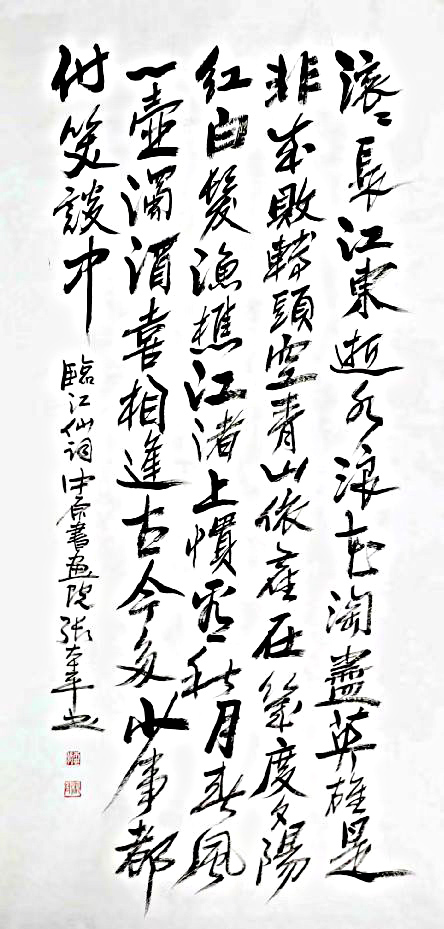 滚〻長江東逝水浪花淘盡英雄是
非成敗轉頭空青山依舊在幾度夕陽
红白髮漁樵江渚上慣看秋月春風
一壺濁酒喜相逢古今多少事都
付笑談中
臨江仙詞中原書畫院張